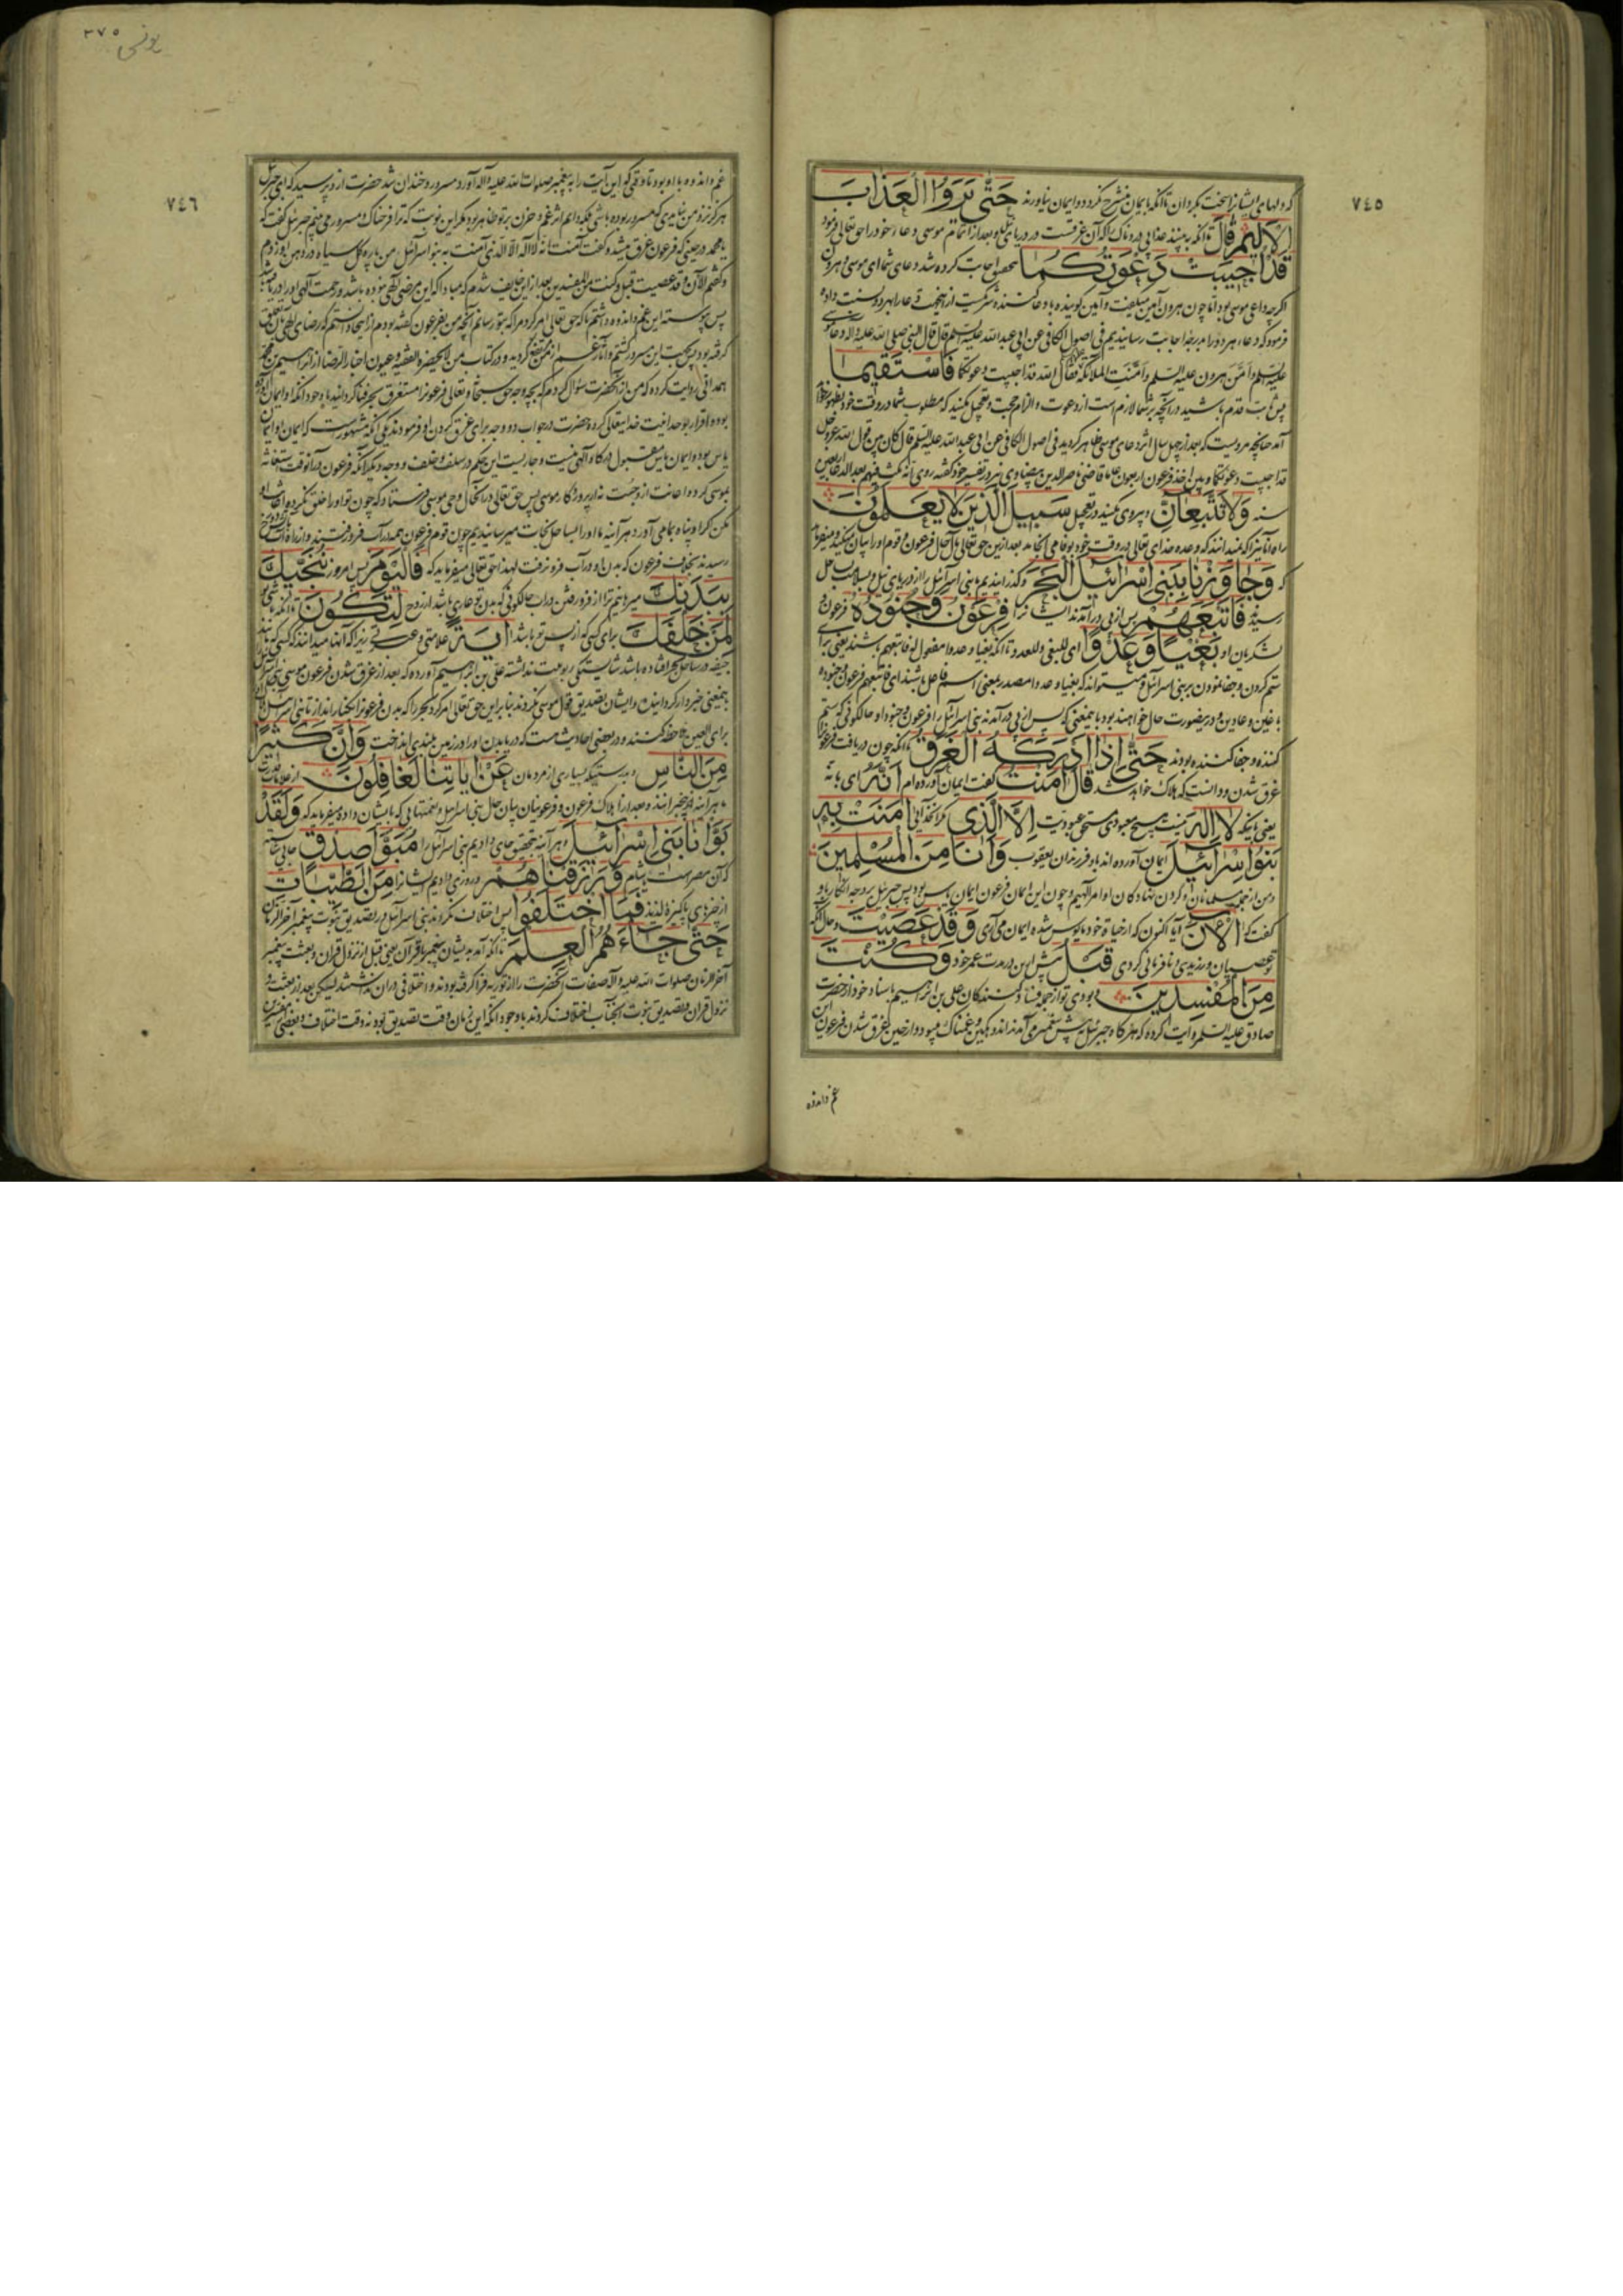 ٧٤٥
که دلهای ایشانرا سخت بگردان تا آنکه بایمان منشرح نگردد و ایمان نیاورند حَتّٰی یَرَوُا الْعَذَابَ
الْاَلِیْمَ قَالَ تا آنکه به بینند عذابی دردناک را که آن غرقست در دریای نیل و بعد از اتمام موسی دعاء خود را حق تعالی فرمود
قَدْ اُجِیْبَتْ دَعْوَتُکُمَا بتحقیق اجابت کرده شد دعای شما ای موسی و هرون
اگرچه داعی موسی بود اما چون هرون آمین میگفت و آمین گوینده با دعا کننده شریکست ازینجهت دعا را بهر دو نسبت داده
فرمود که دعاء هر دو را بدرجه اجابت رسانیدیم فی اصول الکافی عن ابی عبد الله علیه السلم قال قال النبی صلی الله علیه و اله دعا موسی
علیه السلم و امّن هرون علیه السلم و امّنت الملائکة فقال الله قد اجیبت دعوتکما فَاسْتَقِیْمَا
پس ثابت قدم باشید در آنچه بر شما لازم است از دعوت و الزام حجت و تعجیل مکنید که مطلوب شما در وقت خود بظهور خواهد
آمد چنانچه مرویست که بعد از چهل سال اثر دعای موسی ظاهر گردید فی اصول الکافی عن ابی عبد الله علیه السلم قال کان بین قول الله عز و جل
قد اجیبت دعوتکما و بین اخذ فرعون اربعون عاما قاضی ناصر الدین بیضاوی نیز در تفسیر خود گفته روی انه مکث فیهم بعد الدعا اربعین
سنه وَلَا تَتَّبِعَانِّ و پیروی مکنید در تعجیل سَبِیْلَ الَّذِیْنَ لَا یَعْلَمُوْنَ
راه آنانیرا که نمیدانند که وعده خدای تعالی در وقت خود بوفا می انجامد بعد ازین حق تعالی مآل حال فرعون و قوم او را بیان میکند و میفرماید
که وَجَاوَزْنَا بِبَنِیْ اِسْرَائِیْلَ الْبَحْرَ و گذرانیدیم بنی اسرائیل را از دریای نیل و بسلامت بساحل
رسیدند فَاَتْبَعَهُمْ پس از پی در آمدند ایشانرا فِرْعَوْنُ وَجُنُوْدُهُ فرعون و
لشکریان او بَغْیًا وَعَدْوًا ای للبغی و للعدو تا آنکه بغیا و عدوا مفعول له فاتبعهم باشند یعنی برای
ستم کردن و جفا نمودن بر بنی اسرائیل و میتواند که بغیا و عدوا مصدر بمعنی اسم فاعل باشند ای فاتبعهم فرعون و جنوده
باغین و عادین و درینصورت حال خواهند بود باینمعنی که پس از پی در آمدند بنی اسرائیل را فرعون و جنود او حالکونی که ستم
کننده و جفا کننده بودند حَتّٰی اِذَا اَدْرَکَهُ الْغَرَقُ تا آنکه چون دریافت فرعونرا
غرق شدن و دانست که هلاک خواهد شد قَالَ اٰمَنْتُ گفت ایمان آورده ام اَنَّهُ ای بانه
یعنی باینکه لَا اِلٰهَ نیست هیچ معبودی مستحق عبودیت اِلَّا الَّذِیْ مگر آنخدائی اٰمَنَتْ بِهٖ
بَنُوْا اِسْرَائِیْلَ ایمان آورده اند باو فرزندان یعقوب وَاَنَا مِنَ الْمُسْلِمِیْنَ
و من از جمله مسلمانان و گردن نهادگان اوامر آلهیم و چون این ایمان فرعون ایمان یاس بود پس جبرئیل بر وجه انکار باو
گفت که اٰلْاٰنَ آیا اکنون که از حیاة خود مایوس شده ایمان می آری وَقَدْ عَصَیْتَ و حال آنکه
تو عصیان ورزیدی و نافرمانی کردی قَبْلُ پیش ازین در مدت عمر خود وَکُنْتَ
مِنَ الْمُفْسِدِیْنَ و بودی تو از جمله فساد کنندگان علی بن ابراهیم باسناد خود از حضرت
صادق علیه السلم روایت کرده که هرگاه جبرئیل پیش پیغمبر می آمد اندوهگین و غمناک میبود و از حین غرق شدن فرعون این
غم و اندوه
٣٧٥
یونس
٧٤٦
غم و اندوه با او بود تا وقتی که این آیت را به پیغمبر صلوات الله علیه و اله آورد مسرور و خندان شد حضرت ازو پرسید که ای جبرئیل
هرگز نزد من نیامدی که مسرور بوده باشی بلکه دایم اثر غم و حزن بر تو ظاهر بود مگر این نوبت که ترا فرحناک و مسرور می بینم جبرئیل گفت که
یا محمد در حینی که فرعون غرق میشد و گفت آمنت انه لا اله الا الذی آمنت به بنو اسرائیل من پاره گل سیاه در دهن او زدم
و گفتم الآن و قد عصیت قبل و کنت من المفسدین بعد ازان خایف شدم که مبادا که این مرضی آلهی نبوده باشد و رحمت آلهی او را دریافته باشد
پس پیوسته این غم و اندوه داشتم تا که حق تعالی امر کرد مرا که بتو رسانم آنچه من بفرعون گفته بودم ازینجا دانستم که رضای آلهی بآن تعلق
گرفته بود پس بجهت این مسرور گشتم و آثار غم از من مرتفع گردید و در کتاب من لا یحضره الفقیه و عیون اخبار الرضا از ابراهیم بن محمد
همدانی روایت کرده که من از آنحضرت سؤال کردم که بچه وجه حق سبحانه و تعالی فرعونرا مستغرق بحر فنا گردانید با وجود آنکه او ایمان آورده
بود و اقرار بوحدانیت خدایتعالی کرده حضرت در جواب دو وجه برای غرق کردن او فرمودند یکی آنکه مشهور است که ایمان او ایمان
یاس بود و ایمان یاس مقبول درگاه آلهی نیست و جاریست این حکم در سلف و خلف و وجه دیگر آنکه فرعون در آنوقت استغاثه
بموسی کرده و اعانت ازو جست نه از پروردگار موسی پس حق تعالی در آنحال وحی بموسی فرستاد که چون تو او را خلق نکرده اغاثه او
مکن که اگر او پناه بما می آورد هر آینه ما او را بساحل نجات میرسانیدیم چون قوم فرعون همه در آب فرو رفتند
رسیدند بخلاف فرعون که بدن او در آب فرو نرفت لهذا حق تعالی میفرماید که فَالْیَوْمَ پس امروز نُنَجِّیْکَ
بِبَدَنِکَ میرهانیم ترا از فرو رفتن در آب حالکونی که بدن تو عاری باشد از روح لِتَکُوْنَ تا آنکه باشی تو
لِمَنْ خَلْفَکَ برای کسی که از پس تو باشد اٰیَةً علامتی و عبرتی زیرا که آنها میدانند که کسی که مانند
جیفه در ساحل بحر افتاده باشد شایستگی ربوبیت نداشته علی بن ابراهیم آورده که بعد از غرق شدن فرعون موسی بنی اسرائیل را
باینمعنی خبردار گردانیده و ایشان تصدیق قول موسی نکردند بنابراین حق تعالی امر کرد بحر را که بدن فرعونرا بکنار اندازد تا بنی اسرائیل او را
برای العین ملاحظه کنند و در بعضی احادیث هست که دریا بدن او را در زمین بلندی انداخت وَاِنَّ کَثِیْرًا
مِنَ النَّاسِ و بدرستیکه بسیاری از مردمان عَنْ اٰیَاتِنَا لَغَافِلُوْنَ از علامات قدرت
ما هر آینه بیخبرانند و بعد از اهلاک فرعون و فرعونیان بیان حال بنی اسرائیل و نعمتهائی که بایشان داده میفرماید که وَلَقَدْ
بَوَّاْنَا بَنِیْ اِسْرَائِیْلَ و هر آینه بتحقیق جای دادیم بنی اسرائیل را مُبَوَّاَ صِدْقٍ جائی شایسته
که آن مصر است یا شام وَرَزَقْنَاهُمْ و روزی دادیم ایشانرا مِنَ الطَّیِّبَاتِ
از چیزهای پاکیزه لذیذ فَمَا اخْتَلَفُوْا پس اختلاف نکردند بنی اسرائیل در تصدیق نبوت پیغمبر آخر الزمان
حَتّٰی جَاءَهُمُ الْعِلْمُ تا آنکه آمد بدیشان پیغمبر یا قرآن یعنی قبل از نزول قرآن و بعثت پیغمبر
آخر الزمان صلوات الله علیه و آله صفات آنحضرت را از توریة فرا گرفته بودند و اختلافی دران نداشتند لیکن بعد از بعثت و
نزول قرآن و تصدیق نبوت آنجناب اختلاف کردند با وجود آنکه این زمان وقت تصدیق بود نه وقت اختلاف و بعضی مفسرین